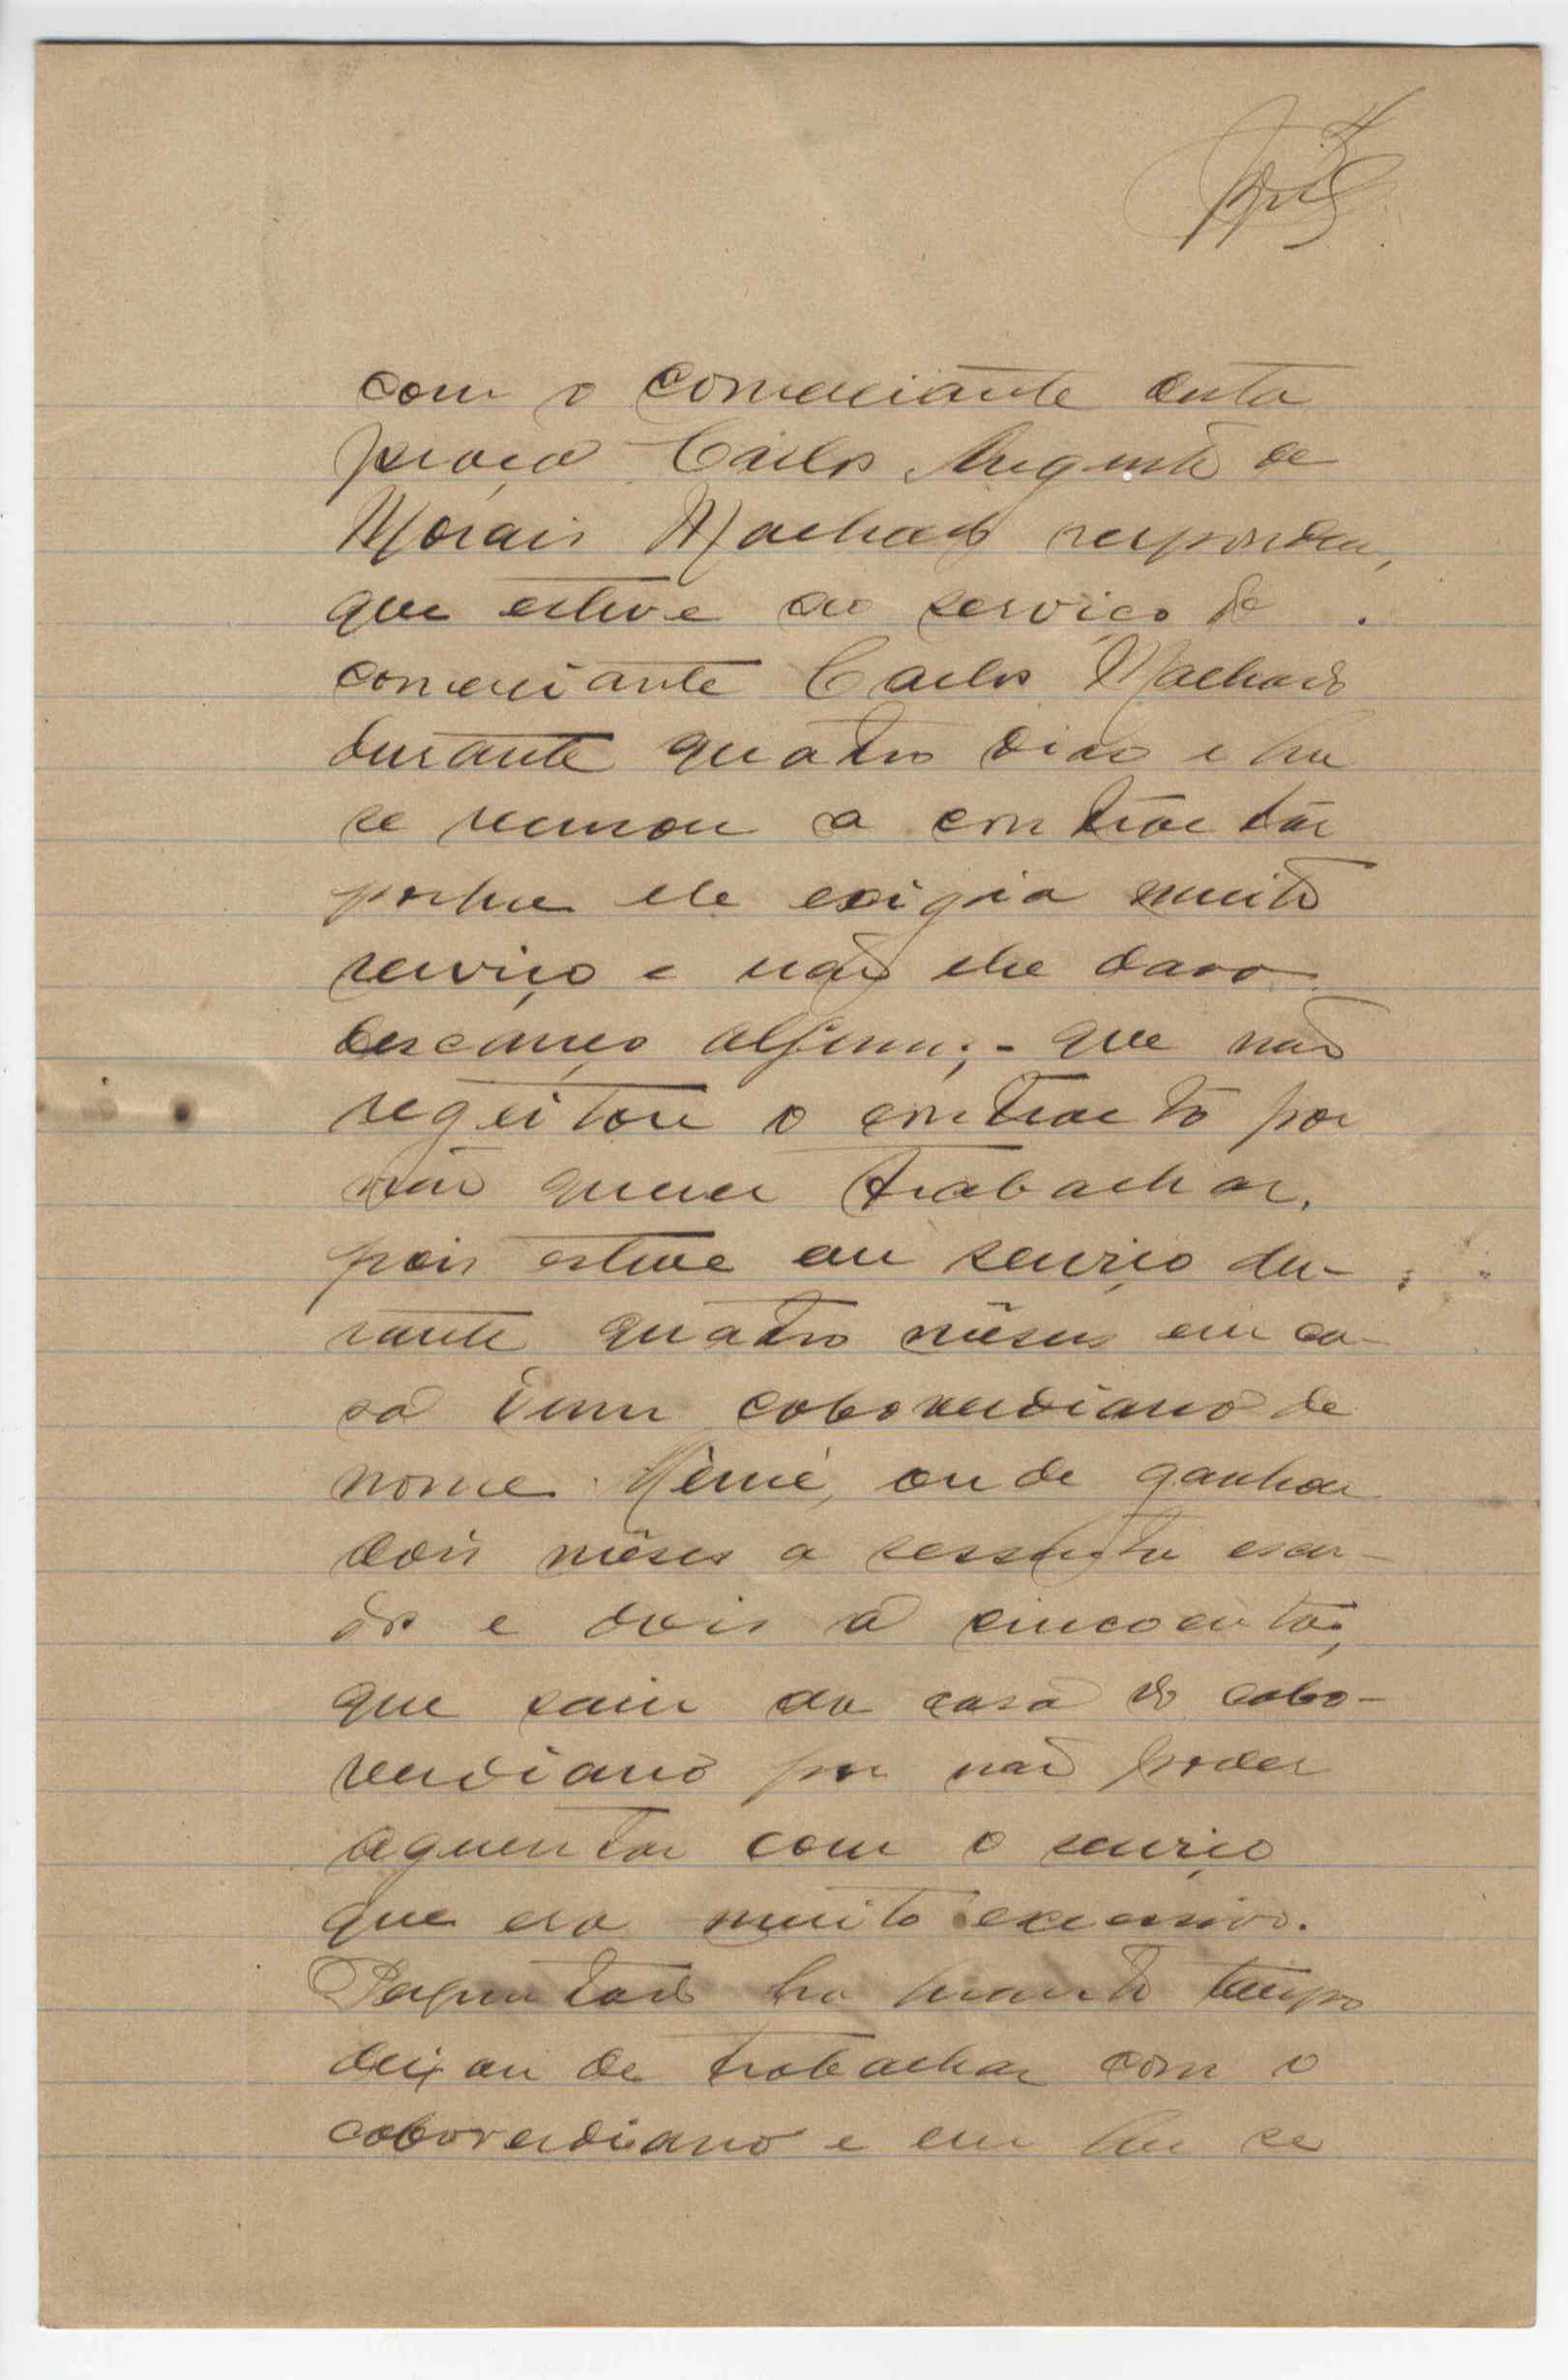 com o comerciante desta
praça Carlos Augusto de
Morais Machado respondeu,
que esteve ao serviço do
comerciante Carlos Machado
durante quatro dias e que
se recusou a contractar
porque ele exigia muito
serviço e não lhe dava
descanço algum; - que não
regeitou o contracto por
não querer trabalhar,
pois esteve em serviço du-
rante quatro mêses em ca-
sa dum caboverdiano de
nome onde ganhou
dois mêses a sessenta escu-
dos e dois a cincoenta;
que saiu da casa do cabo-
verdiano por não poder
aguentar com o serviço
que era muito excessivo.
Perguntado ha quanto tempo
deixou de trabalhar com o
caboverdiano e em que se